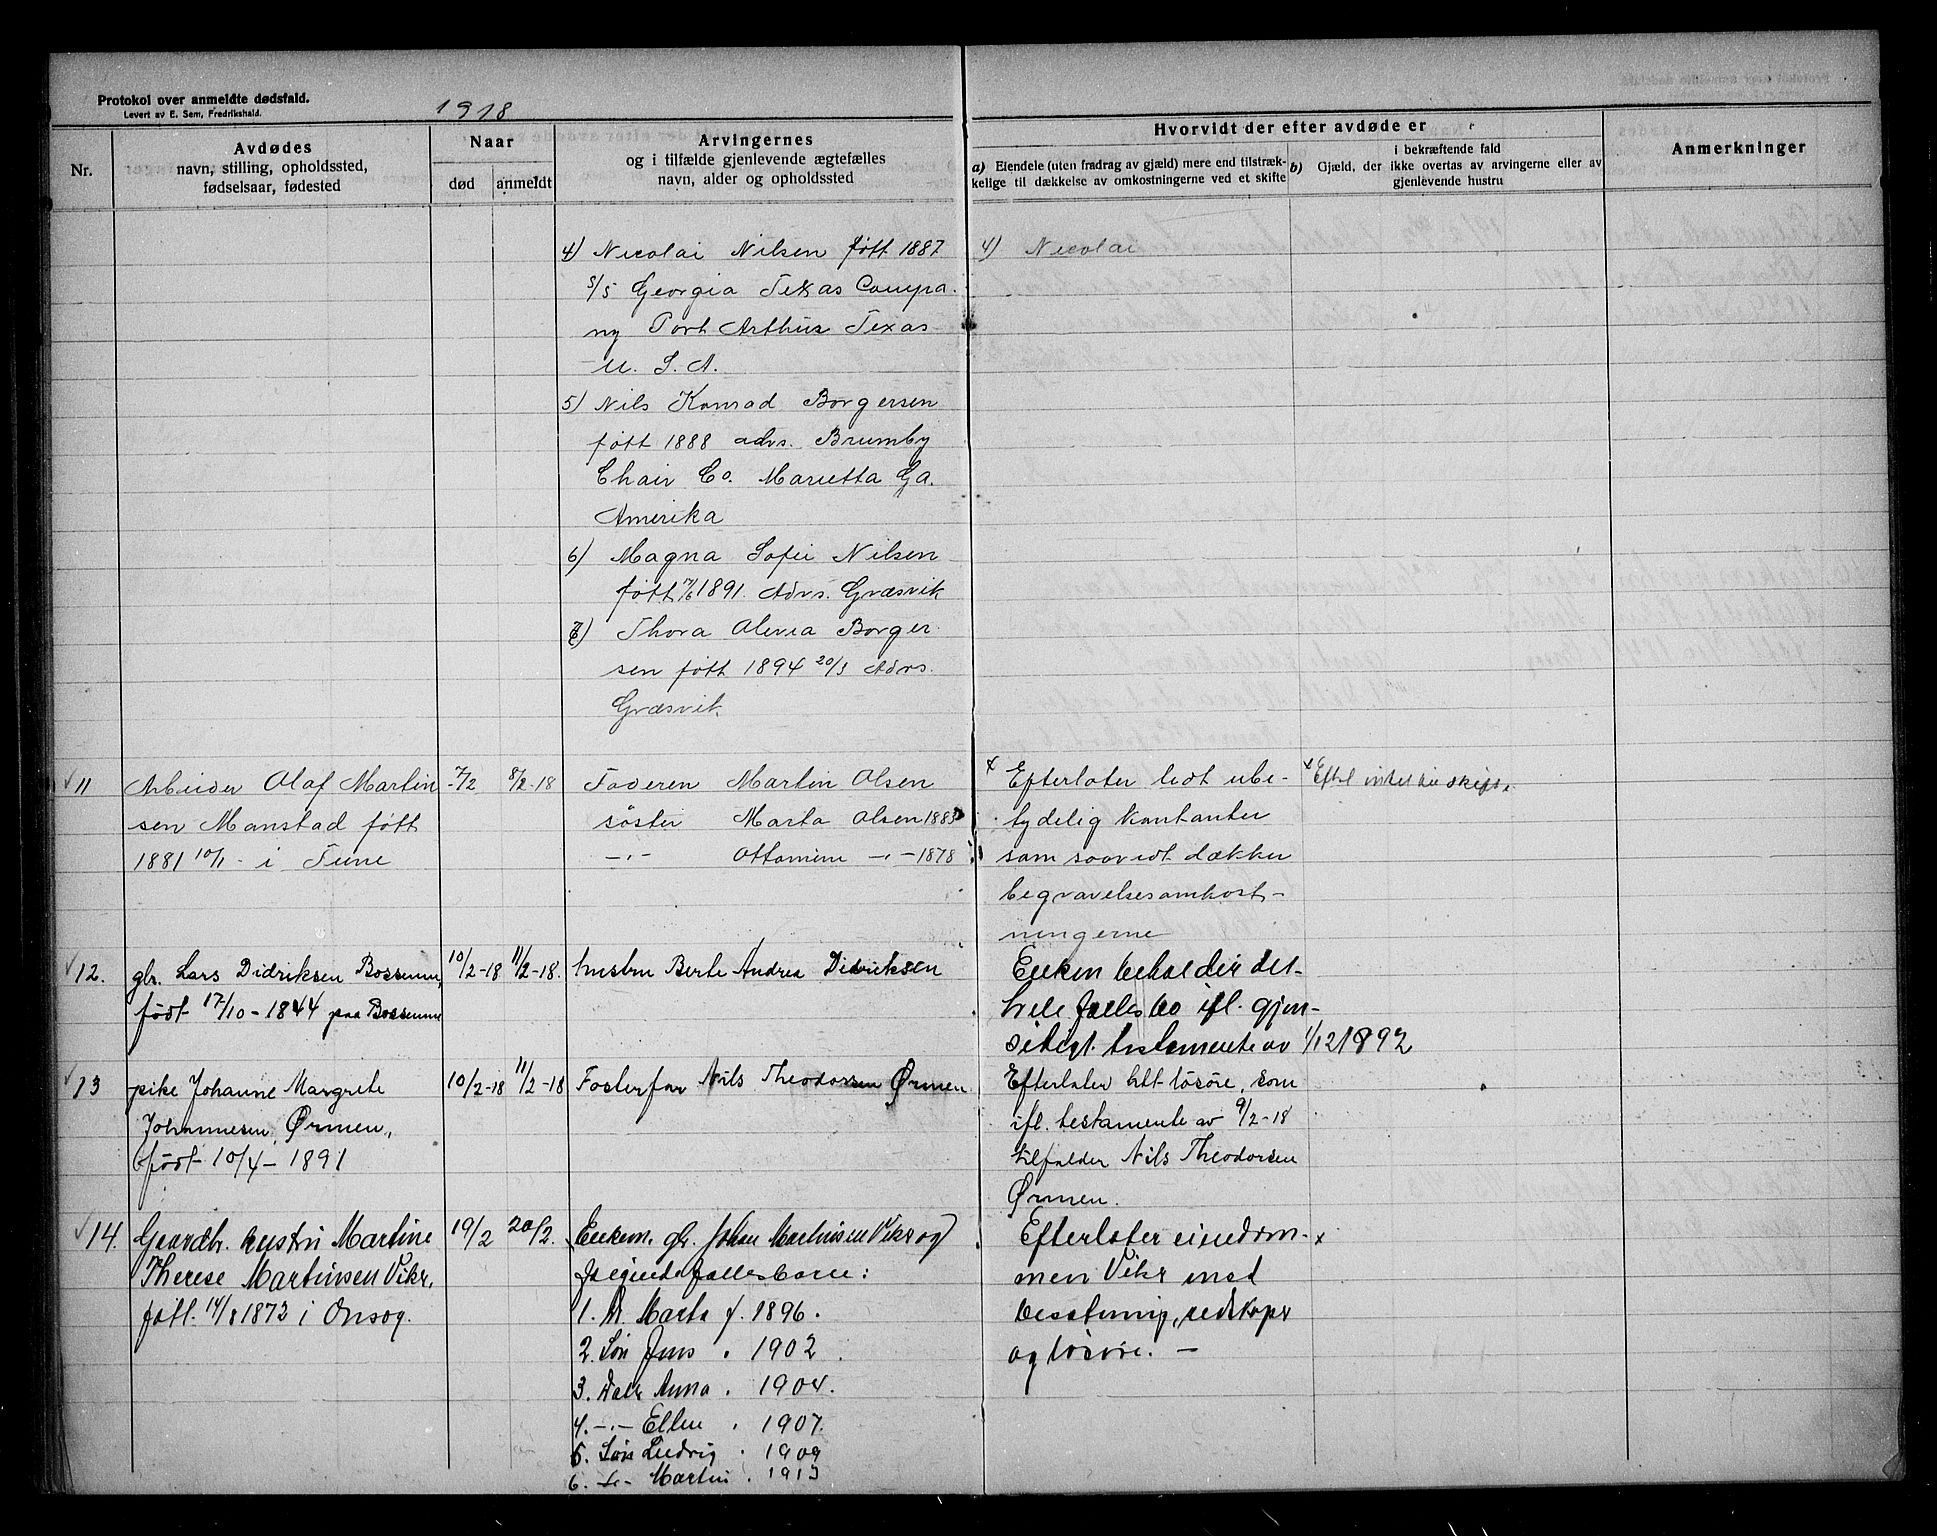 Protokol over anmeldte dødsfald.
Levert av E. Sem, Fredrikshald.
1918
Nr.
Avdødes
navn, stilling, opholdssted,
fødselsaar, fødested
Naar
død
anmeldt
Arvingernes
og i tilfælde gjenlevende ægtefælles
navn, alder og opholdssted
Hvorvidt der efter avdøde er
a) Eiendele (uten fradrag av gjæld) mere end tilstræk-
kelige til dækkelse av omkostningerne ved et skifte
i bekræftende fald
b) Gjæld, der ikke overtas av arvingerne eller av
gjenlevende hustru
Anmerkninger
4) Nicolai Nilsen født 1887
s/s Georgia Texas Compa-
ny Port Arthur Texas
U. S. A.
4) Nicolai
5) Nils Konrad Borgersen
født 1888 adrs. Brumby
Chair Co. Marietta Ga.
Amerika
6) Magna Sofie Nilsen
født 1891. Adrs. Græsvik
7) Thora Olevia Borger-
sen født 1894 20/3 Adrs.
Græsvik
11
Arbeider Olaf Martin
sen Manstad født
1881 10/1 - i Tune
7/2
8/2-18
Faderen Martin Olsen
søster Marta Olsen 1883
-"- Ottomine -"- 1878
x Efterlater lidt ube-
tydelig kontanter
som saavidt dækker
begravelsesomkost-
ningerne
x
12.
gbr. Lars Didriksen Bossum,
født 17/10 - 1844 paa Bossum
10/2-18
11/2-18.
hustru Berte Andrea Didriksen
Enken beholder det
hele fællesbo ifl. gjen-
sidigt testamente av 1/12 1892
13
pike Johanne Margrete
Johannesen, Ørmen,
født 10/4 - 1891
10/2-18
11/2-18
Fosterfar Nils Theodorsen Ørmen
Efterlater litt løsøre, som
ifl. testamente av 9/2-18
tilfalder Nils Theodorsen
Ørmen.
14.
Gaardbr. hustru Martine
Therese Martinsen Vikr,
født. 14/8 1873 i Onsøy.
19/2
20/2.
Enkem. gbr. Johan Martinsen Vikr og
følgende fællesbarn:
1. D. Marta f. 1896.
2. Søn Jens " 1902.
3. Datr Anna " 1904.
4. -"- Ellen " 1907.
5. Søn Ludvig " 1909
6. -"- Martin " 1913
Efterlater eiendom- x
men Vikr med
besetning, redskaper
og løsøre. -